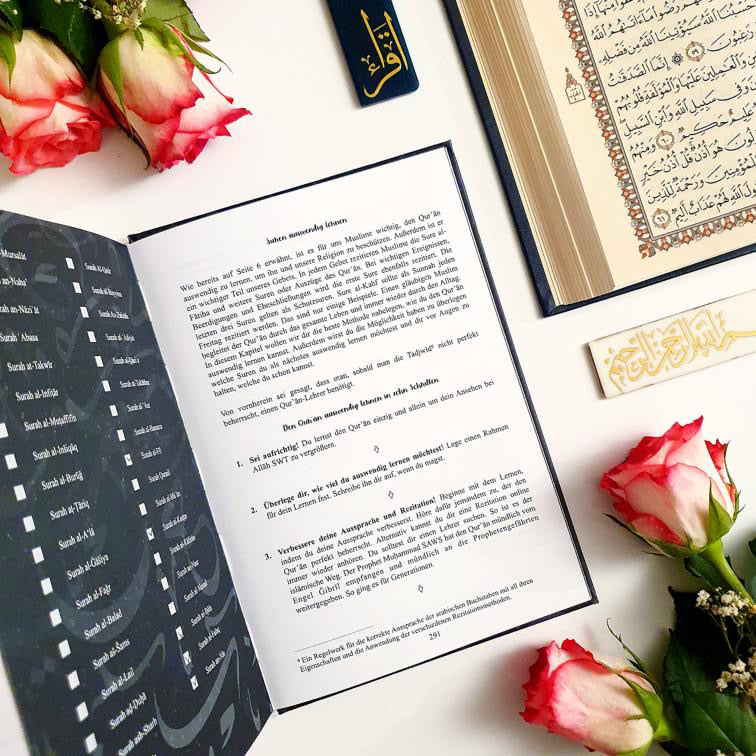 -Mursalāt
an-Nabaʾ
Surah at-Takwīr
Surah al-Infiṭār
Surah al-Muṭaffifīn
Surah al-Inšiqāq
Surah al-Burūǧ
Surah aṭ-Ṭāriq
Surah al-Aʿlā
Surah al-Ġāšiya
Surah al-Faǧr
Surah al-Balad
Surah aš-Šams
Surah al-Lail
Surah aḍ-Ḍuḥā
Surah aš-Šarḥ
Surah al-Qadr
Surah al-Fīl
Suren auswendig lernen
Wie bereits auf Seite 6 erwähnt, ist es für uns Muslime wichtig, den Qurʾān
auswendig zu lernen, um ihn und unsere Religion zu beschützen. Außerdem ist er
ein wichtiger Teil unseres Gebets. In jedem Gebet rezitieren Muslime die Sure al-
Fātiḥa und weitere Suren oder Auszüge des Qurʾān. Bei wichtigen Ereignissen,
Beerdigungen und Eheschließungen wird die erste Sure ebenfalls rezitiert. Die
letzten drei Suren gelten als Schutzsuren. Sure al-Kahf sollte als Sunnah jeden
Freitag rezitiert werden. Das sind nur einige Beispiele. Einen gläubigen Muslim
begleitet der Qurʾān durch das gesamte Leben und immer wieder durch den Alltag.
In diesem Kapitel wollen wir dir die beste Methode nahelegen, wie du den Qurʾān
auswendig lernen kannst. Außerdem wirst du die Möglichkeit haben zu überlegen
welche Suren du als nächstes auswendig lernen möchtest und dir vor Augen zu
halten, welche du schon kannst.
Von vornherein sei gesagt, dass man, sobald man die Tadjwīd⁹ nicht perfekt
beherrscht, einen Qurʾān-Lehrer benötigt.
Den Qurʾan auswendig lernen in zehn Schritten
1. Sei aufrichtig! Du lernst den Qurʾān einzig und allein um dein Ansehen bei
Allāh SWT zu vergrößern.
2. Überlege dir, wie viel du auswendig lernen möchtest! Lege einen Rahmen
für dein Lernen fest. Schreibe ihn dir auf, wenn du magst.
3. Verbessere deine Aussprache und Rezitation! Beginne mit dem Lernen,
indem du deine Aussprache verbesserst. Höre dafür jemandem zu, der den
Qurʾān perfekt beherrscht. Alternativ kannst du dir eine Rezitation online
immer wieder anhören. Du solltest dir einen Lehrer suchen. So ist es der
islāmische Weg. Der Prophet Muḥammad SAWS hat den Qurʾān mündlich vom
Engel Ǧibrīl empfangen und mündlich an die Prophetengefährten
weitergegeben. So ging es für Generationen.
⁹ Ein Regelwerk für die korrekte Aussprache der arabischen Buchstaben mit all ihren
Eigenschaften und die Anwendung der verschiedenen Rezitationsmethoden.
291
اقرأ
حَسْبُنَا اللَّهُ سَيُؤْتِينَا اللَّهُ مِن فَضْلِهِ
إِنَّمَا الصَّدَقَٰتُ
وَالْعَٰمِلِينَ عَلَيْهَا وَالْمُؤَلَّفَةِ قُلُوبُهُمْ
سَبِيلِ اللَّهِ وَابْنِ السَّبِيلِ
عَلِيمٌ حَكِيمٌ ٦٠ وَمِنْهُمُ
هُوَ أُذُنٌ قُلْ أُذُنُ خَيْرٍ
وَرَحْمَةٌ لِّلَّذِينَ
لَهُمْ عَذَابٌ أَلِيمٌ ٦١
بسم الله الرحمن الرحيم